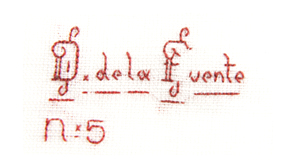 D. de la Fuente
n. 5